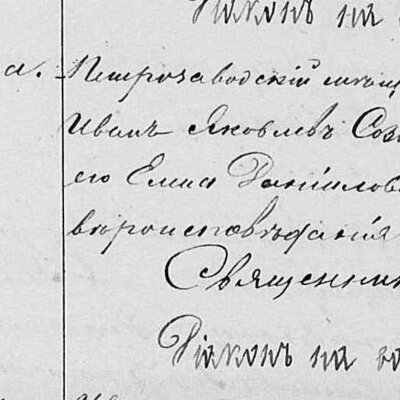 Діаконъ на
а. Петрозаводскій мѣщ
Иванъ Яковлевъ Соз
его Елена Данилов
вѣроисповѣданія
Священник
Діаконъ на ва